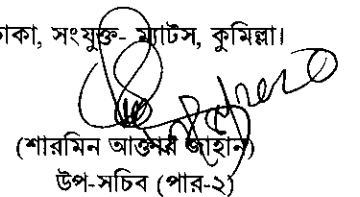 ঢাকা, সংযুক্ত- ম্যাটস, কুমিল্লা।
(শারমিন আক্তার জাহান)
উপ-সচিব (পার-২)